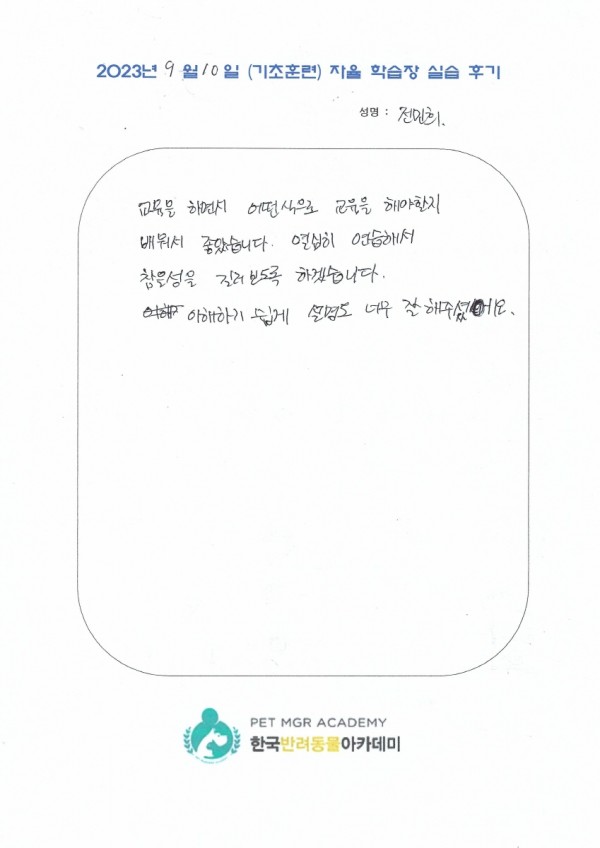 2023년 9월 10일 (기초훈련) 자율 학습장 실습 후기
성명 : 전민희.
교육을 하면서 어떤식으로 교육을 해야할지
배워서 좋았습니다. 열심히 연습해서
참을성을 길러보도록 하겠습니다.
이해하기 쉽게 설명도 너무 잘 해주셨어요.
PET MGR ACADEMY
한국반려동물아카데미